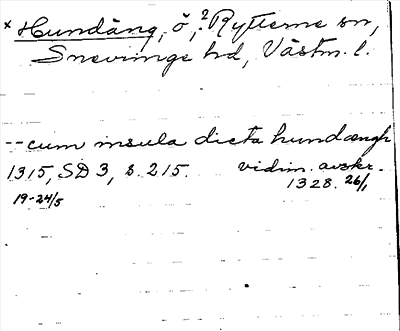 × Hundäng, ö, ? Rytterne sn,
Snevringe hd, Västm. l.
-- cum insula dicta hundængh
1315, SD 3, s. 215. vidim. avskr.
1328. 26/1
19-24/5